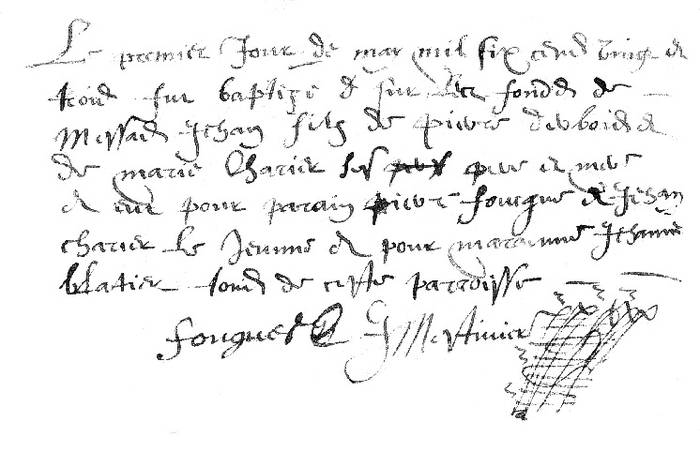 Le premier Jour de mar mil six cend vingt et
troid fut baptizé et sur lecz fondz de
Messac Jehan filz de pierre dusboid et
de marie Charier ses pere et mere
et eut pour parain pierre fougue et Jehan
charier le Jeunne et pour maraynne Jehanne
blatier toud de ceste paroisse
fougue Mestivier